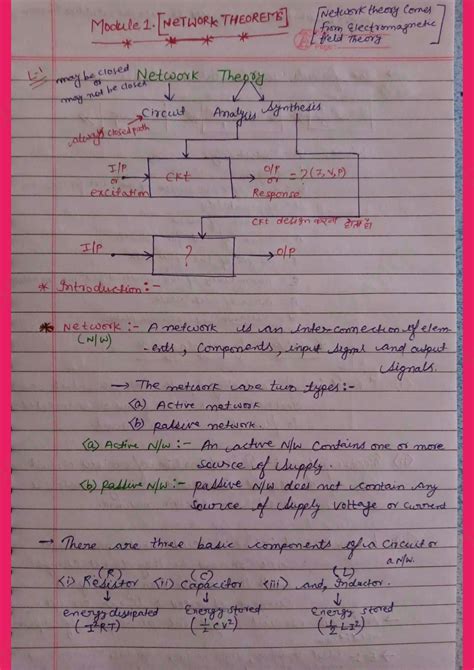 Module 1. [NETWORK THEOREMS]
[Network theory Comes
from Electromagnetic
field Theory]
L-1
may be closed
or
may not be closed
Network Theory
Circuit Analysis Synthesis
always closed path
I/P
or
excitation
CKt
O/P
or
Response
= ? (I, V, P)
Ckt design करना
I/P
?
O/P
* Introduction :-
* Network :- A network is an inter-connection of elem-
(N/W)
ents, Components, input signal and output
signals.
→ The network are two types :-
(a) Active network
(b) passive network.
(a) Active N/W :- An active N/W Contains one or more
source of supply.
(b) passive N/W :- passive N/W does not contain any
source of supply voltage or current
→ There are three basic components of a Circuit or
a N/W.
(R) (C) (L)
(i) Resistor (ii) Capacitor (iii) and, Inductor.
energy dissipated Energy stored Energy stored
(I²RT) (½ CV²) (½ LI²)